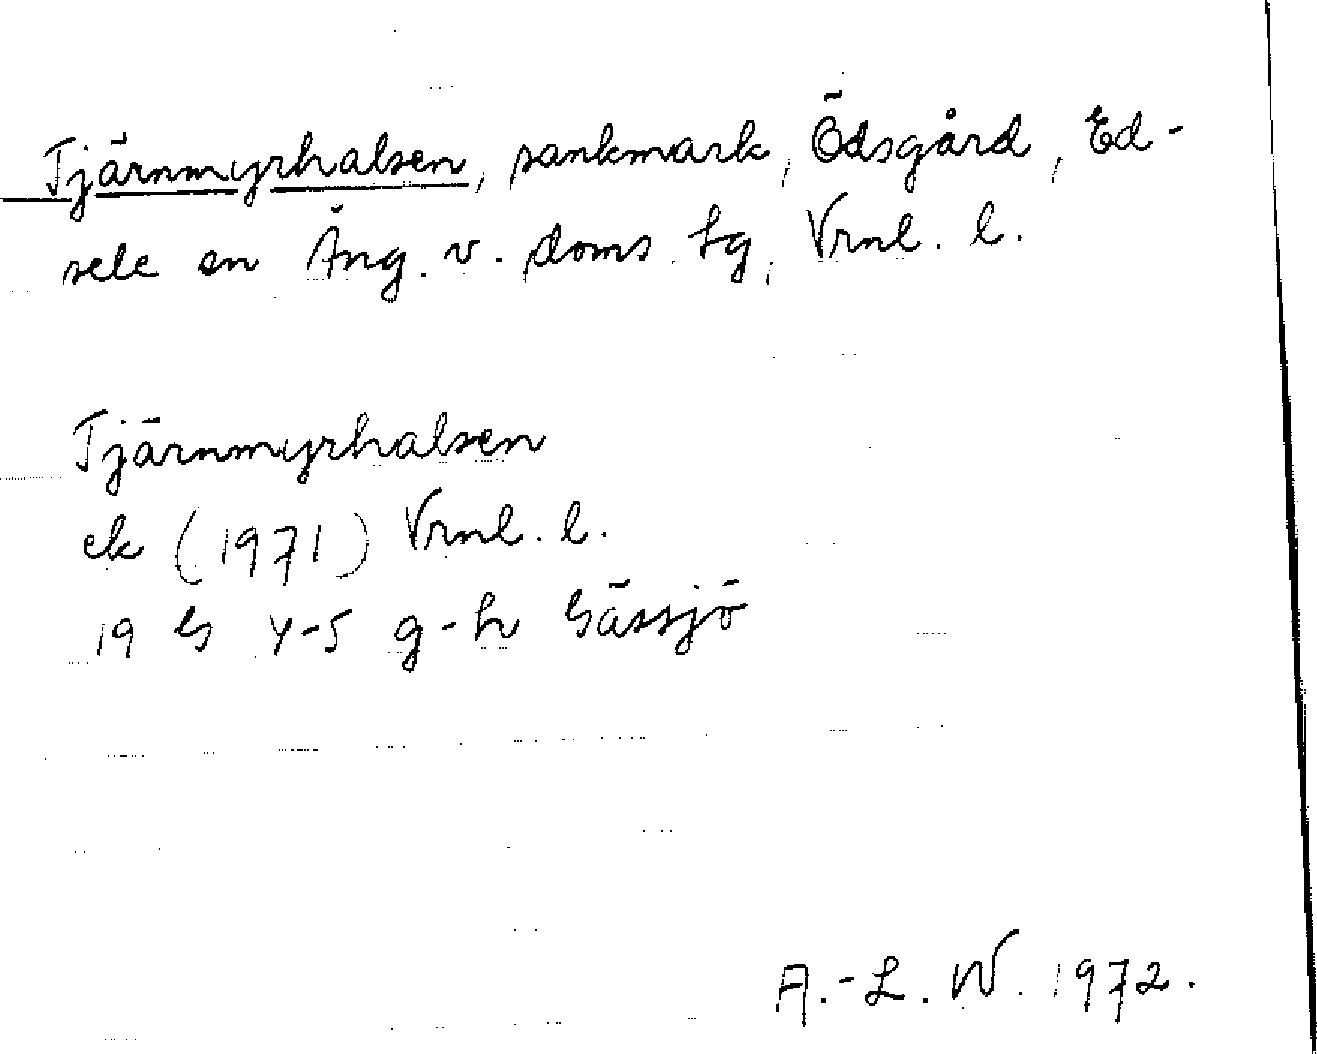 Tjärnmyrhalsen, sankmark, Ödsgård, Ed-
sele sn Ång. v. doms. lg, Vrnl. l.
Tjärnmyrhalsen
ek (1971) Vrnl. l.
19 G 4-5 g-h Gässjö
A.-L. W. 1972.